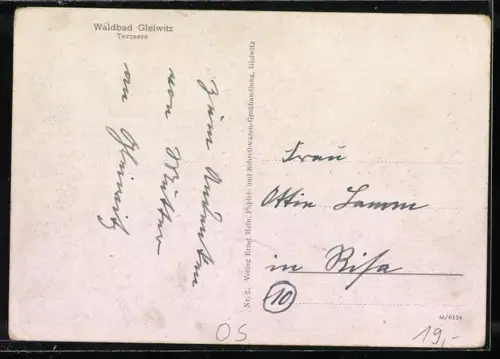 Waldbad Gleiwitz
Terrasse
Zum Andenken
von Mutter
an Gleiwitz
Nr. 2. Verlag Ernst Hein, Papier- und Schreibwaren-Großhandlung, Gleiwitz
Frau
Ottie Lamm
in Risa
10
M/6126
OS
19,-